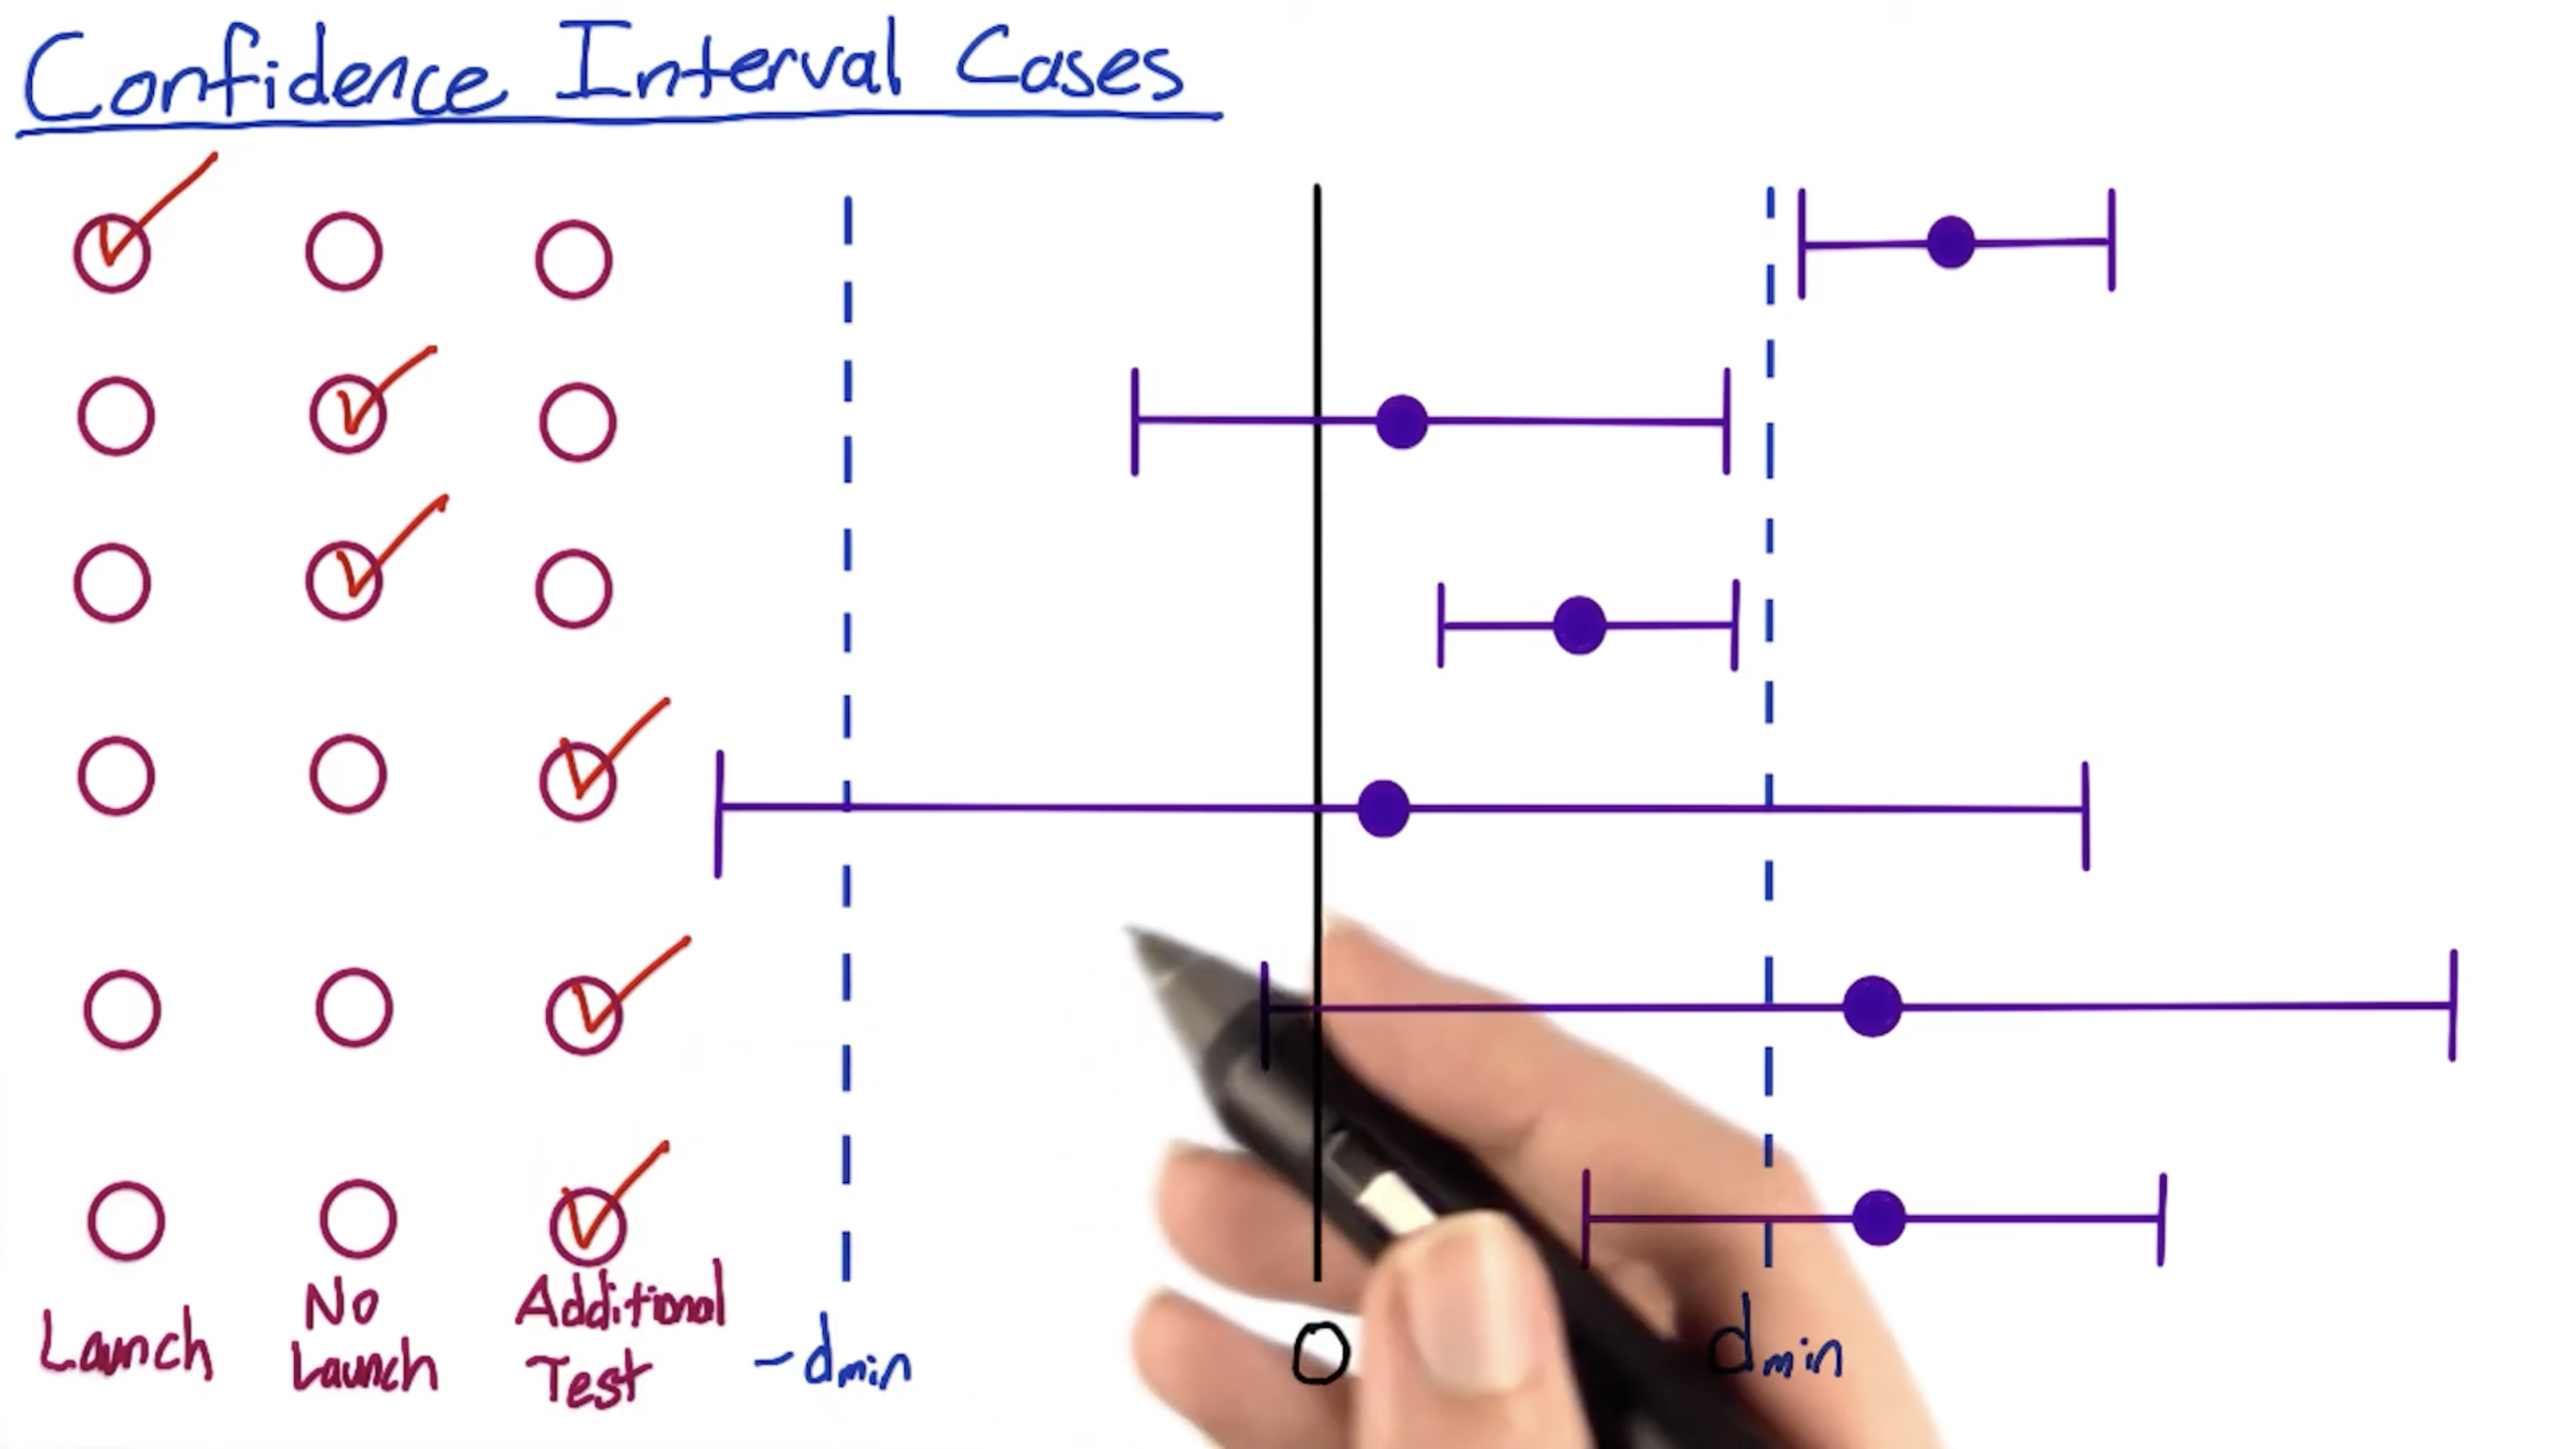 Confidence Interval Cases
Launch
No
Launch
Additional
Test
-dmin
0
dmin